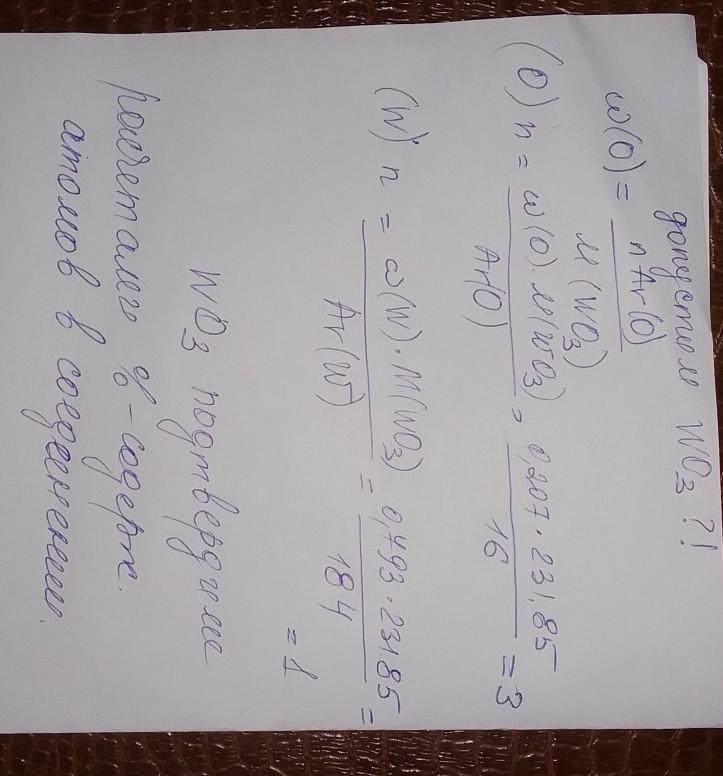 допустим WO₃ ?!
ω(O) = n Ar(O) / M(WO₃)
(O) n = ω(O) · M(WO₃) / Ar(O) = 0,207 · 231.85 / 16 = 3
(W) n = ω(W) · M(WO₃) / Ar(W) = 0,793 · 231.85 / 184 =
= 1
WO₃ подтвердили
расчетами %-содерж.
атомов в соединении.